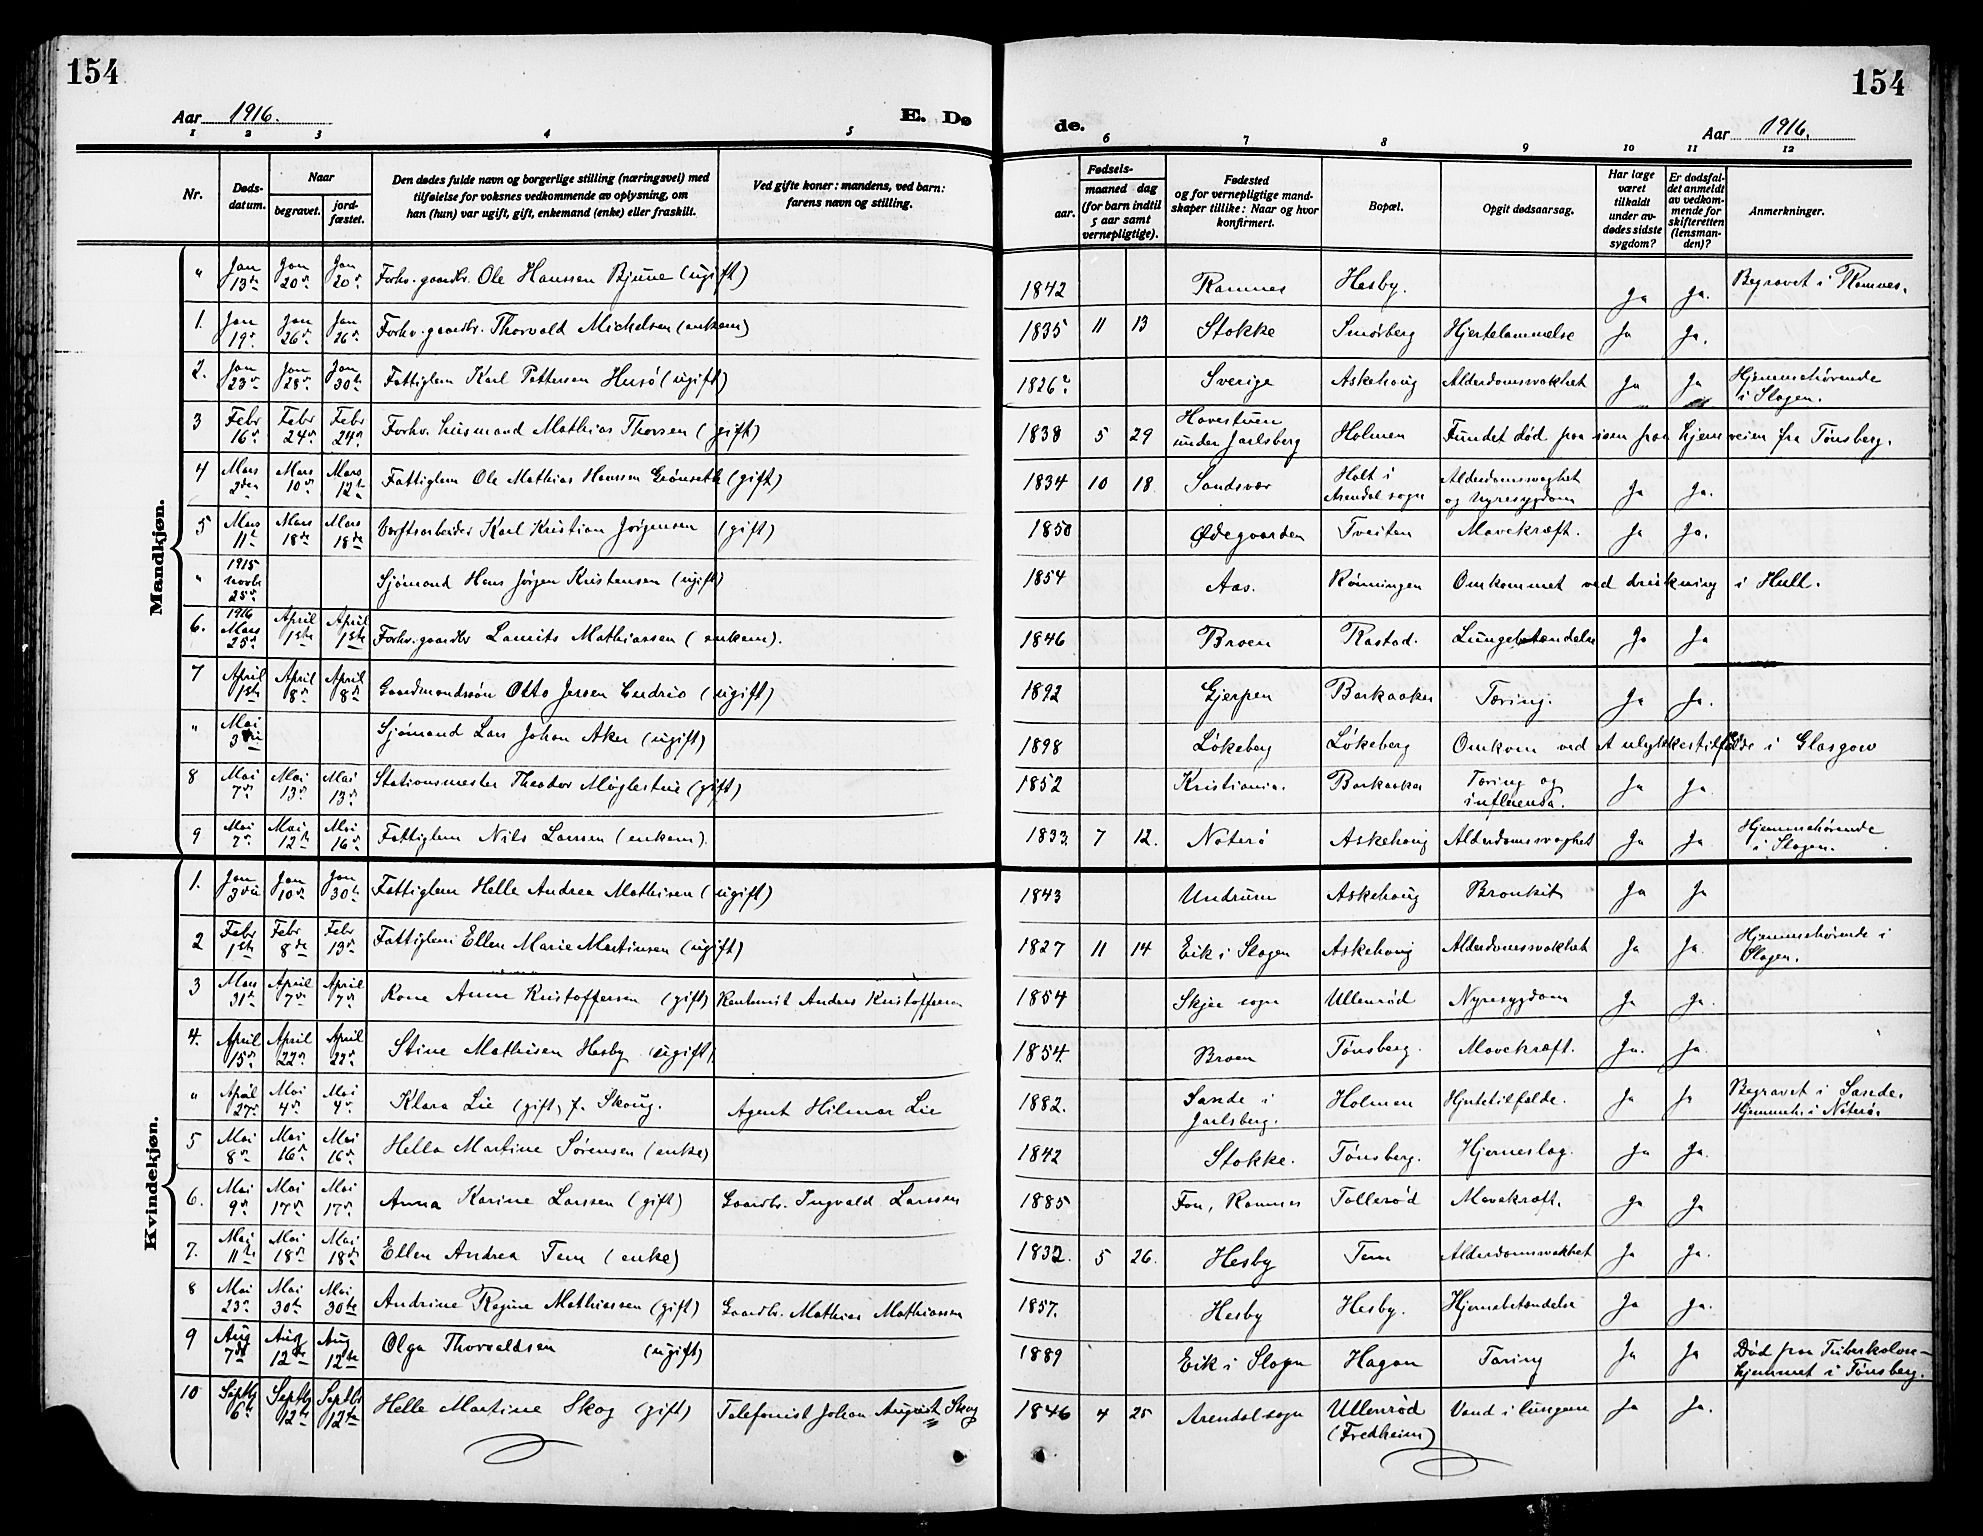 154
154
Aar 1916.
E. Dø
de.
Aar 1916.
1 2 3 4 5 6 7 8 9 10 11 12
Nr.
Døds-
datum.
Naar
begravet.
jord-
fæstet.
Den dødes fulde navn og borgerlige stilling (næringsvei) med
tilføielse for voksnes vedkommende av oplysning, om
han (hun) var ugift, gift, enkemand (enke) eller fraskilt.
Ved gifte koner: mandens, ved barn:
farens navn og stilling.
Fødsels-
aar.
maaned dag
(for barn indtil
5 aar samt
vernepligtige).
Fødested
og for vernepligtige mand-
skaper tillike: Naar og hvor
konfirmert.
Bopæl.
Opgit dødsaarsag.
Har læge
været
tilkaldt
under av-
dødes sidste
sygdom?
Er dødsfal-
det anmeldt
av vedkom-
mende for
skifteretten
(lensman-
den)?
Anmerkninger.
Mandkjøn.
" Jan 13de Jan 20de Jan 20de Forhv. gaardbr. Ole Hanssen Bjune (ugift) 1842 Ramnes Hesby. Ja Ja. Begravet i Ramnes.
1. Jan 19de Jan 26de Jan 26de Forhv. gaardbr. Thorvald Michelsen (enkem) 1835 11 13 Stokke Smørberg Hjertelammelse Ja Ja.
2. Jan 23de Jan 28de Jan 30te Fattiglem Karl Pettersen Husø (ugift) 1826? Sverige Askehoug Alderdomssvakhet Ja Ja Hjemmehørende
i Slagen.
3 Febr 16de Febr 24de Febr 24de Forhv. husmand Mathias Thorsen (gift) 1838 5 29 Havestuen
under Jarlsberg Holmen Fundet død paa isen paa hjemveien fra Tønsberg.
4 Mars 2den Mars 10de Mars 12te Fattiglem Ole Mathias Hanssen Grønseth (gift) 1834 10 18 Sandsvær Holt i
Arendal sogn Alderdomssvaghet
og nyresygdom Ja Ja.
5 Mars 11te Mars 18de Mars 18de Verftsarbeider Karl Kristian Jørgensen (gift) 1850 Ødegaarden Tveiten Mavekræft. Ja Ja.
" 1915 Novbr 25de Sjømand Hans Jørgen Kristensen (ugift) 1854 Aas. Rønningen Omkommet ved drukning i Hull.
6. 1916 Mars 25de April 1ste April 1ste Forhv. gaardbr Laurits Mathiassen (enkem). 1846 Broen Rastad. Lungebetændelse Ja Ja
7 April 1ste April 8de April 8de Gaardmandssøn Otto Jensen (ugift) 1892 Gjerpen Barkaaker Tæring. Ja Ja.
" Mai 3die Sjømand Lars Johan Aker (ugift) 1898 Løkeberg Løkeberg Omkom ved et ulykkestilfælde i Glasgow
8 Mai 7de Mai 13de Mai 13de Stationsmester Theodor Møglestue (gift) 1852 Kristiania. Barkaaker Tæring og
influensa. Ja Ja
9 Mai 7de Mai 12te Mai 16de Fattiglem Nils Larssen (enkem). 1833. 7 12. Nøterø Askehoug Alderdomssvaghet Ja Ja. Hjemmehørende
i Slagen.
Kvindekjøn.
1. Jan 3die Jan 10de Jan 30te Fattiglem Helle Andrea Mathisen (ugift) 1843 Undrum Askehoug Bronkit Ja Ja
2 Febr 1ste Febr 8de Febr 13de Fattiglem Ellen Marie Martinsen (ugift) 1827 11 14 Eik i Slagen Askehoug Alderdomssvakhet Ja Ja Hjemmehørende i
Slagen.
3 Mars 31te April 7de April 7de Kone Anne Kristoffersen (gift) Rentenist Anders Kristoffersen 1854 Skjee sogn Ullenrød Nyresygdom Ja Ja.
4. April 15de April 22de April 22de Stine Mathisen Hesby (ugift). 1854. Broen Tønsberg. Mavekræft. Ja. Ja.
" April 27de Mai 4de Mai 4de Klara Lie (gift) f. Skoug. Agent Hilmar Lie 1882. Sande i
Jarlsberg. Holmen Hjertetilfælde. Ja Ja Begravet i Sande.
Hjemmeh. i Nøterø.
5 Mai 8de Mai 16de Mai 16de Helle Martine Sørensen (enke) 1842 Stokke. Tønsberg. Hjerneslag. Ja Ja.
6. Mai 9de Mai 17de Mai 17de Anna Karine Larssen (gift) Gaardbr. Ingvald Larssen 1885 Fon, Ramnes Tallerød Mavekræft. Ja Ja
7. Mai 11te Mai 18de Mai 18de Ellen Andrea Tem (enke) 1832. 5 26. Hesby Tem Alderdomssvakhet Ja Ja.
8 Mai 23de Mai 30te Mai 30te Andrine Regine Mathiassen (gift) Gaardbr. Mathias Mathiassen 1857. Hesby Hesby. Hjernebetændelse Ja Ja.
9 Aug 7de Aug 12te Aug 12te Olga Thorvaldsen (ugift) 1889 Eik i Slagen Hagan Tæring Ja Ja Død paa Tuberkulose-
hjemmet i Tønsberg.
10 Septbr 6te Septbr 12te Septbr 12te Helle Martine Skog (gift) Telefonist Johan August Skog 1846 4 25 Arendal sogn Ullenrød
(Fredheim) Vand i lungene Ja Ja.